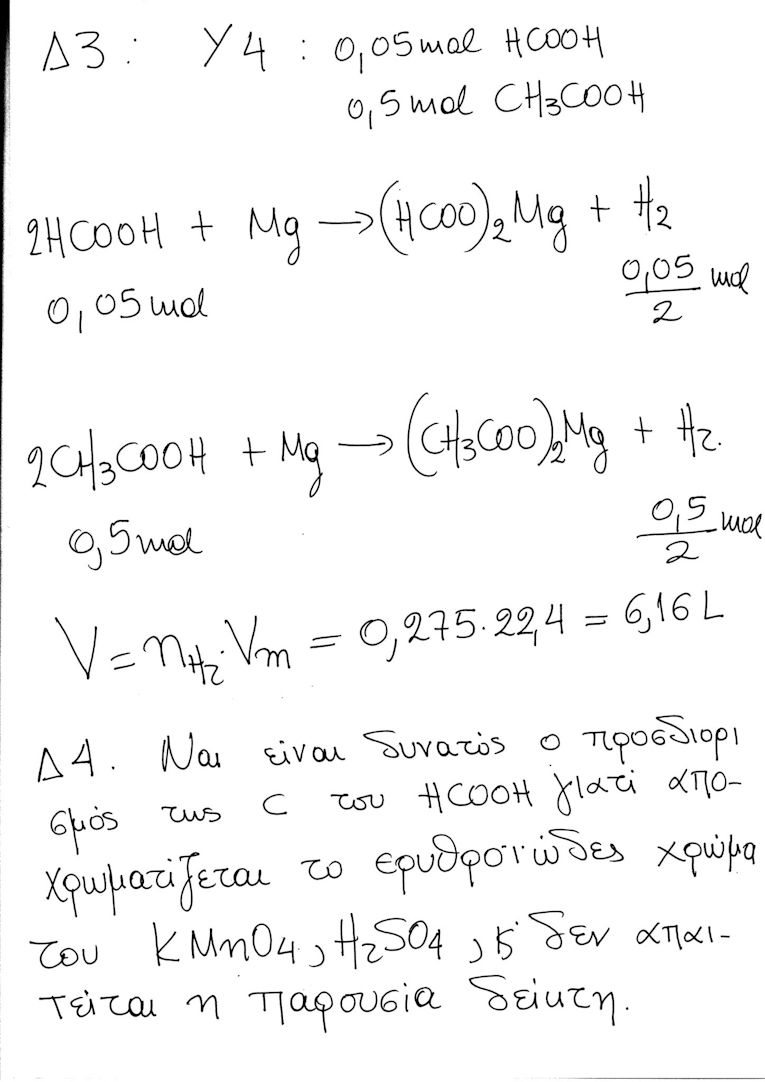 Δ3 : Υ4 : 0,05 mol HCOOH
0,5 mol CH3COOH
2HCOOH + Mg → (HCOO)2Mg + H2
0,05 mol 0,05/2 mol
2CH3COOH + Mg → (CH3COO)2Mg + H2.
0,5 mol 0,5/2 mol
V = nH2·Vm = 0,275·22,4 = 6,16 L
Δ4. Ναι είναι δυνατός ο προσδιορι
σμός της C του HCOOH γιατί απο-
χρωματίζεται το ερυθροϊώδες χρώμα
του KMnO4, H2SO4, κ' δεν απαι-
τείται η παρουσία δείκτη.